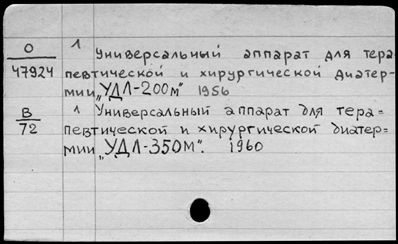 О 1 Универсальный аппарат для тера
47924 певтической и хирургической диатер-
мии „УДЛ-200м" 1956
В 1 Универсальный аппарат для тера=
72 певтической и хирургической диатер=
мии „УДЛ-350М". 1960